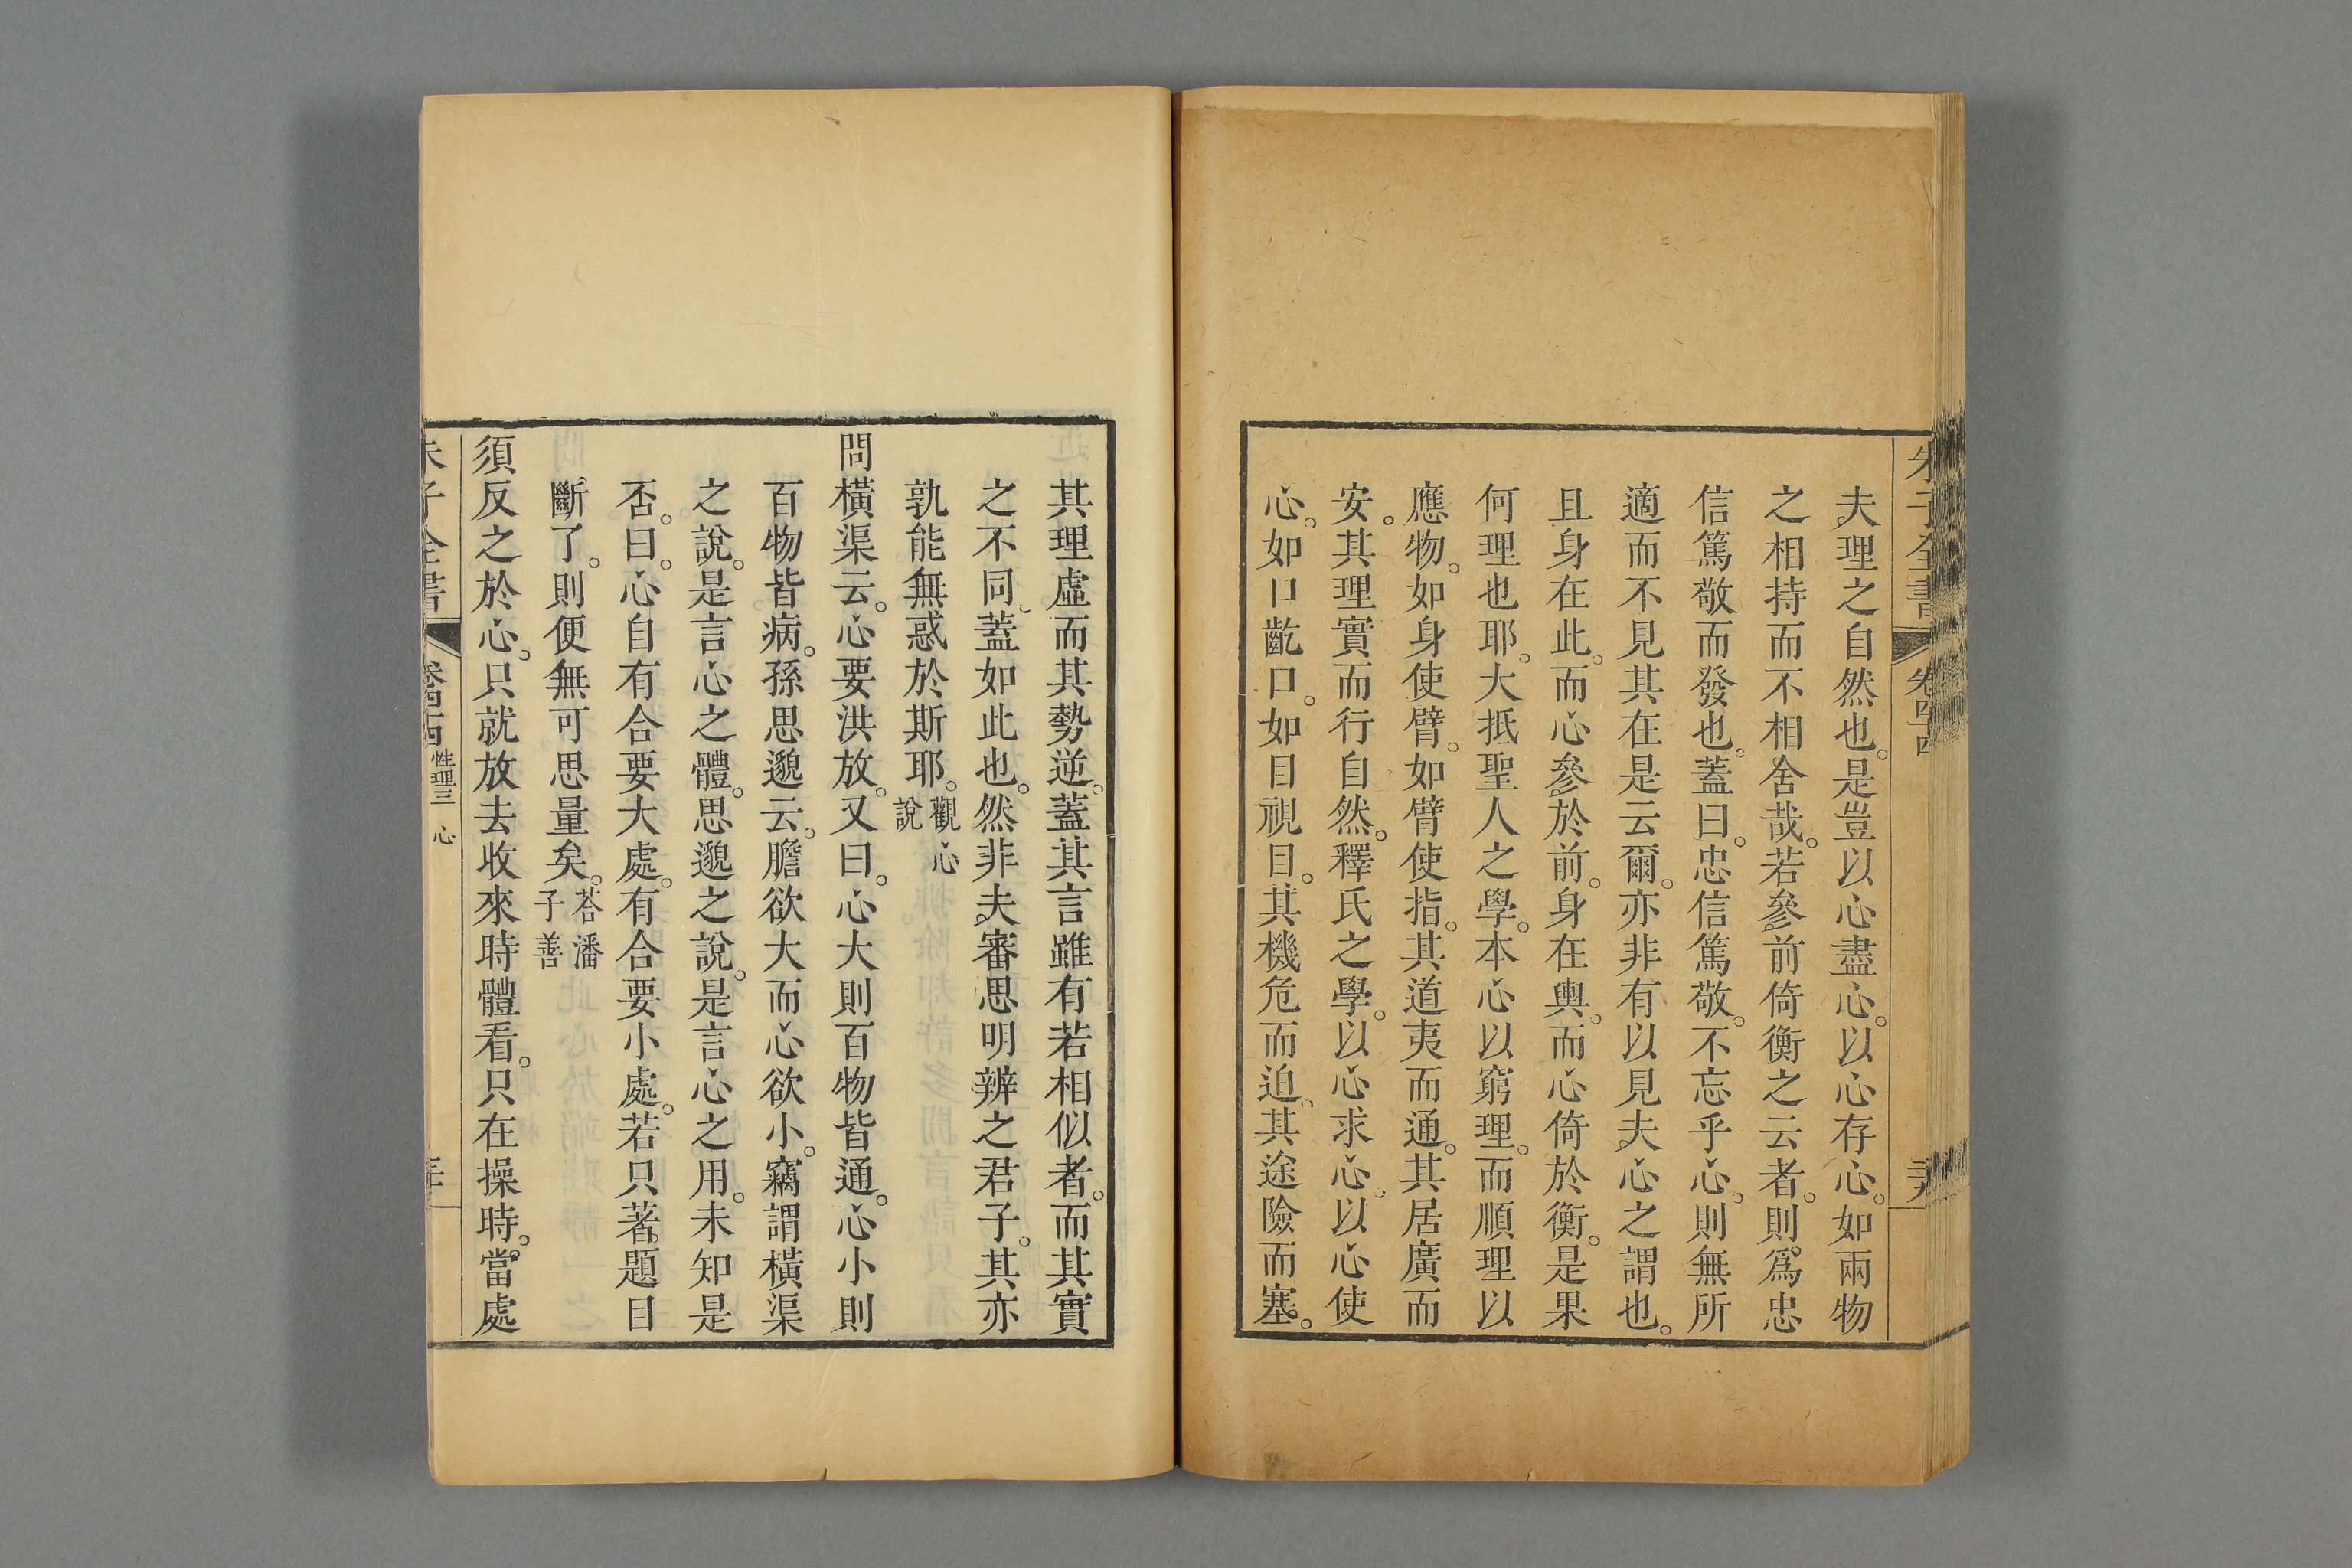 朱子全書 卷四十四
夫理之自然也。是豈以心盡心。以心存心。如兩物
之相持而不相舍哉。若參前倚衡之云者。則爲忠
信篤敬而發也。蓋曰。忠信篤敬。不忘乎心。則無所
適而不見其在是云爾。亦非有以見夫心之謂也。
且身在此。而心參於前。身在輿。而心倚於衡。是果
何理也耶。大抵聖人之學。本心以窮理。而順理以
應物。如身使臂。如臂使指。其道夷而通。其居廣而
安。其理實而行自然。釋氏之學。以心求心。以心使
心。如口齕口。如目視目。其機危而迫。其途險而塞。
其理虛而其勢逆。蓋其言雖有若相似者。而其實
之不同。蓋如此也。然非夫審思明辨之君子。其亦
孰能無惑於斯耶。觀心說
問橫渠云。心要洪放。又曰。心大則百物皆通。心小則
百物皆病。孫思邈云。膽欲大而心欲小。竊謂橫渠
之說。是言心之體。思邈之說。是言心之用。未知是
否。曰。心自有合要大處。有合要小處。若只著題目
斷了。則便無可思量矣。荅潘子善
須反之於心。只就放去收來時體看。只在操時。當處
朱子全書 卷四十四 性理三 心